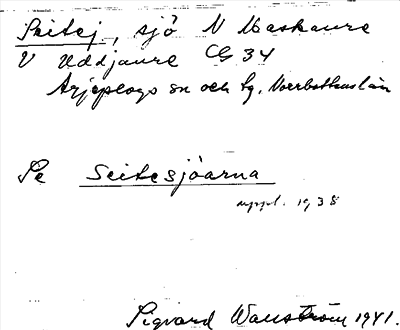 Seitej, sjö N Maskaure
V Uddjaure CG 34
Arjeplogs sn och tg. Norrbottens län
Se Seitesjöarna
uppt. 1938
Sigvard Wallström 1941.